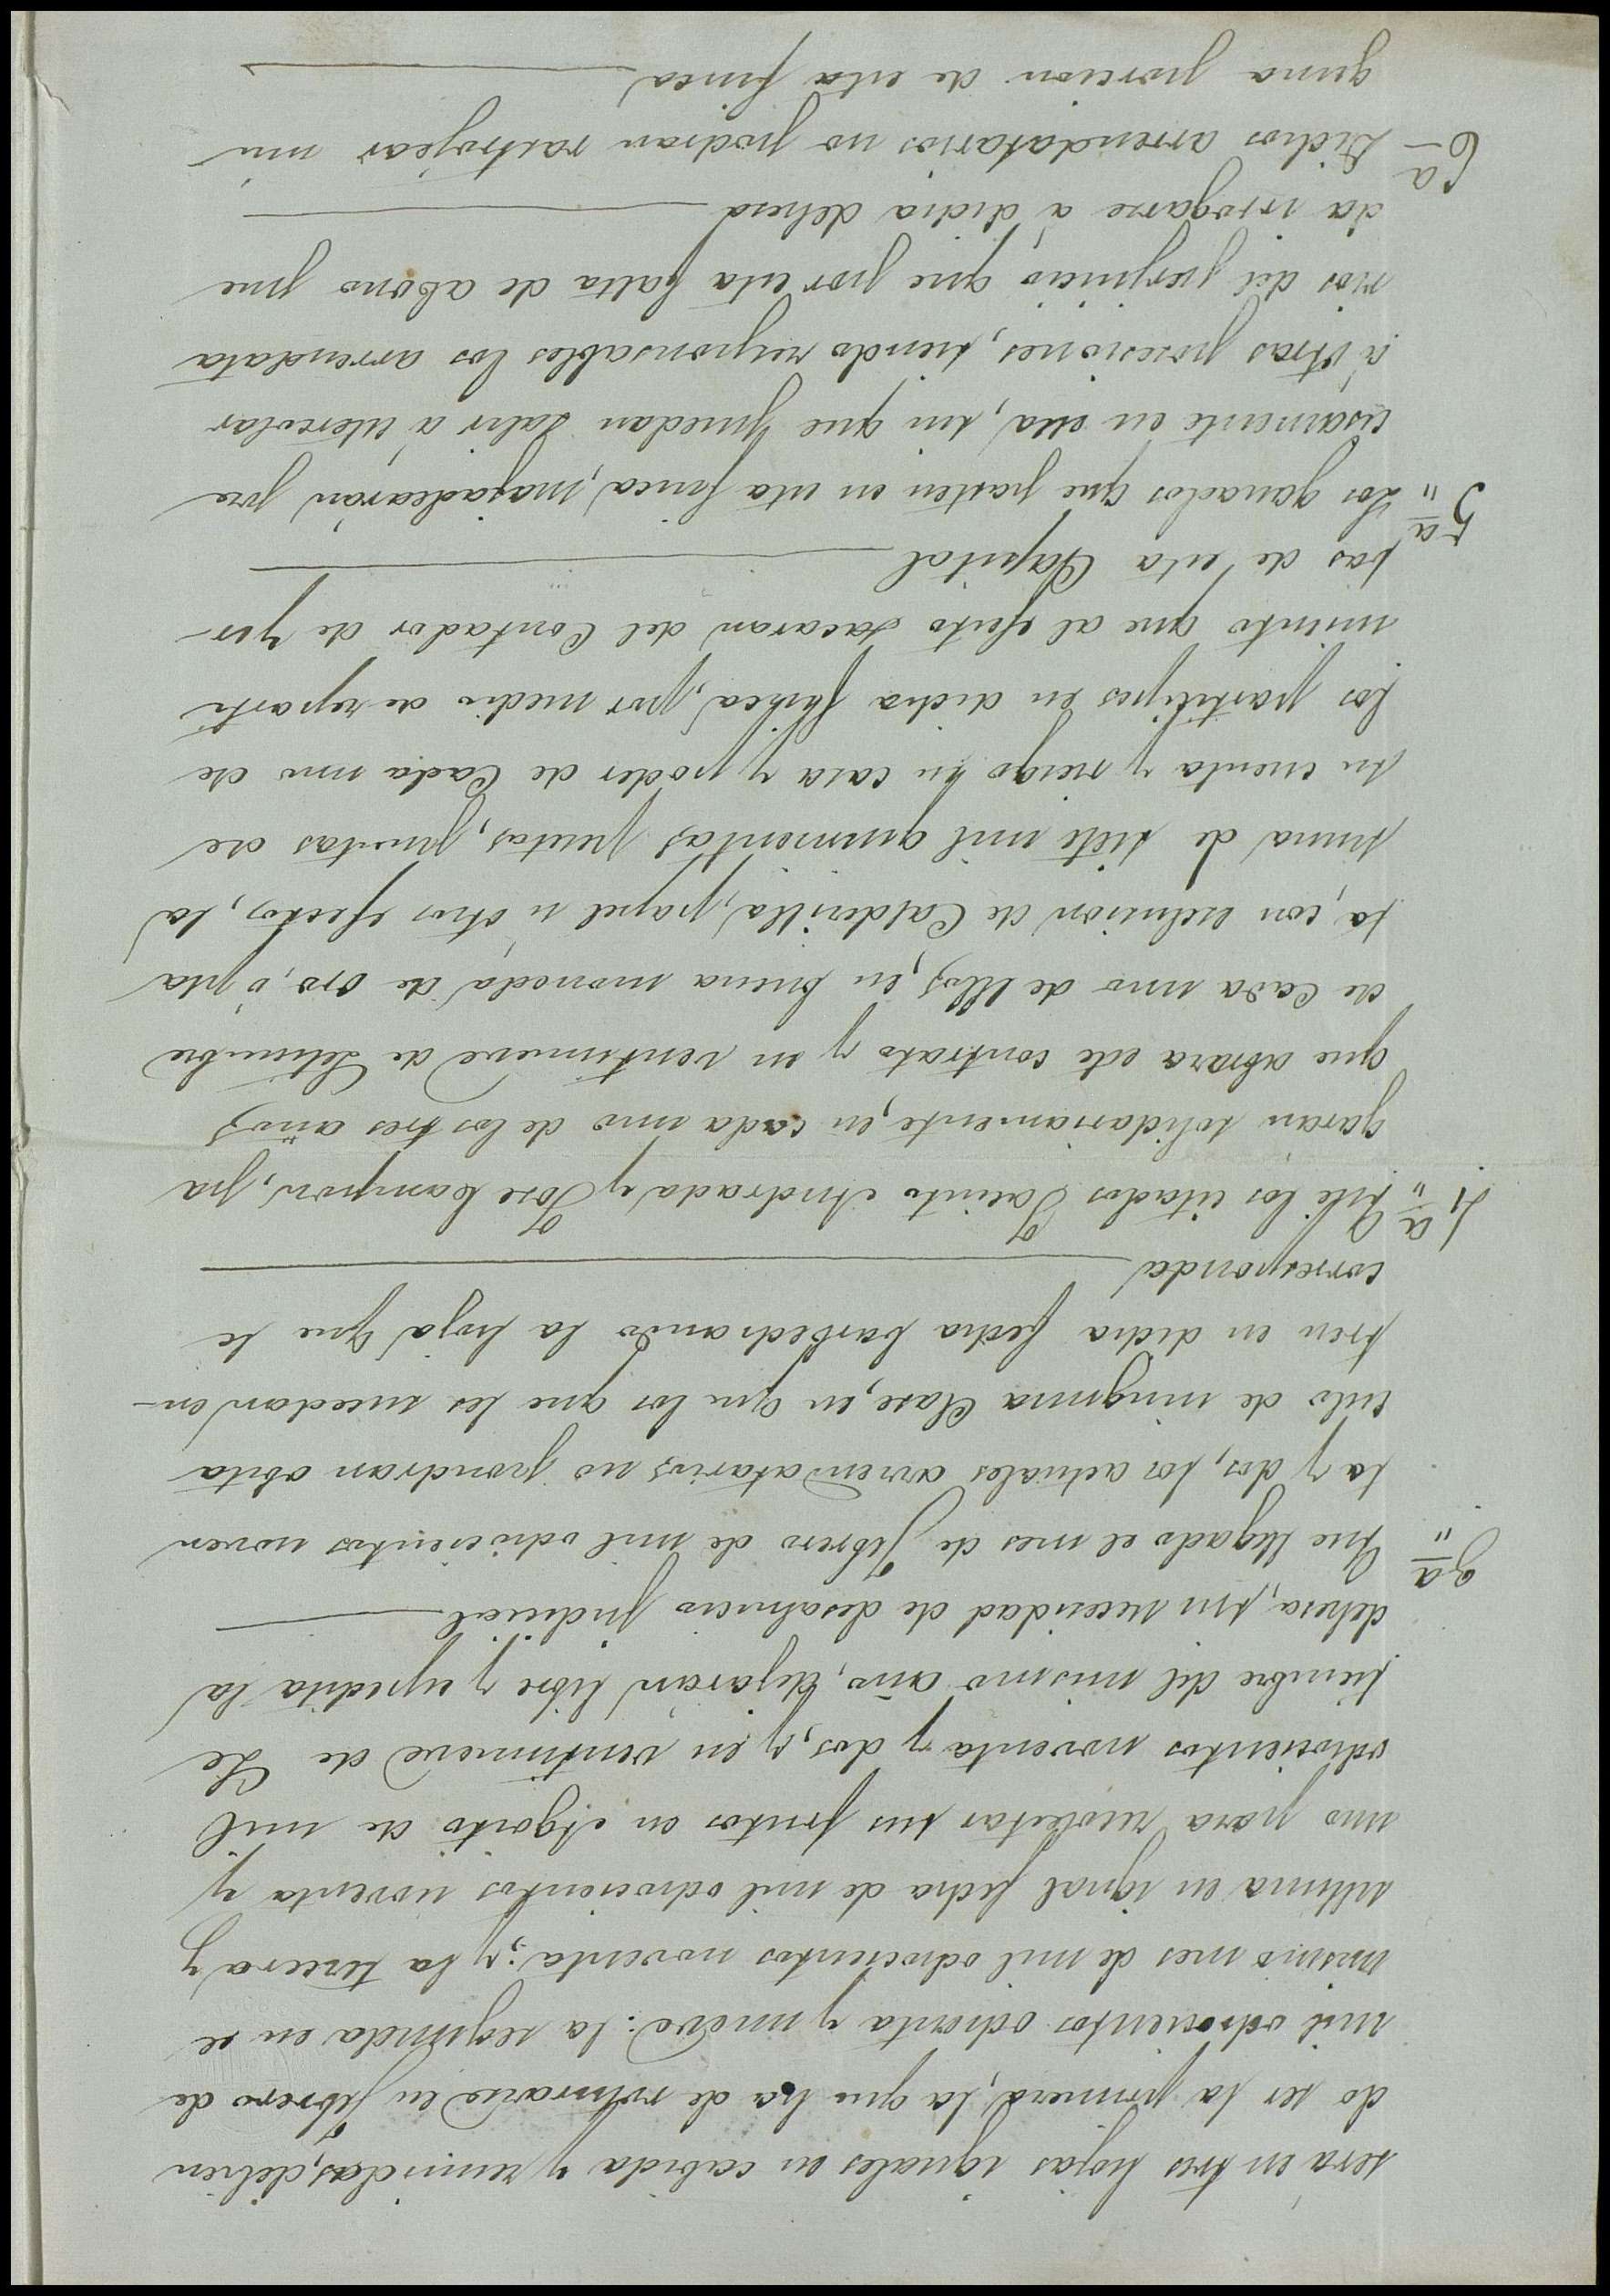 será en tres hojas iguales en cabida y reunidas, debien
do ser la primera, la que ha de roturarse en febrero de
mil ochocientos ochenta y nueve: la segunda en el
mismo mes de mil ochocientos noventa; y la tercera y
ultima en igual fecha de mil ochocientos noventa y
uno para recolectar sus frutos en Agosto de mil
ochocientos noventa y dos, y, en ventinueve de Se
tiembre del mismo año, dejarán libre y espedita la
dehesa, sin necesidad de desahucio judicial
3ª Que llegado el mes de febrero de mil ochocientos noven
ta y dos, los actuales arrendatarios no pondran obsta
culo de ninguna clase, en que los que les sucedan en-
tren en dicha fecha barbechando la hoja que le
corresponda
4ª Que los citados Jacinto Andrada y Jose Campon, pa
garan solidariamente, en cada uno de los tres años
que abraza este contrato y en ventinueve de Setiembre
de cada uno de ellos, en buena moneda de oro, ó pla
ta, con esclusion de Calderilla, papel u otros efectos, la
suma de siete mil quinientas pesetas, puestas de
su cuenta y riesgo en casa y poder de Cada uno de
los participes en dicha finca, por medio de reparti
miento que al efecto sacaran del Contador de yer-
bas de esta Capital
5ª Los ganados que pasten en esta finca, majadearán pre
cisamente en ella, sin que puedan salir á estercolar
á otras posesiones, siendo responsables los arrendata
rios del perjuicio que por esta falta de abono pue
da irrogarse á dicha dehesa
6ª Dichos arrendatarios no podran rastrojear nin
guna porcion de esta finca